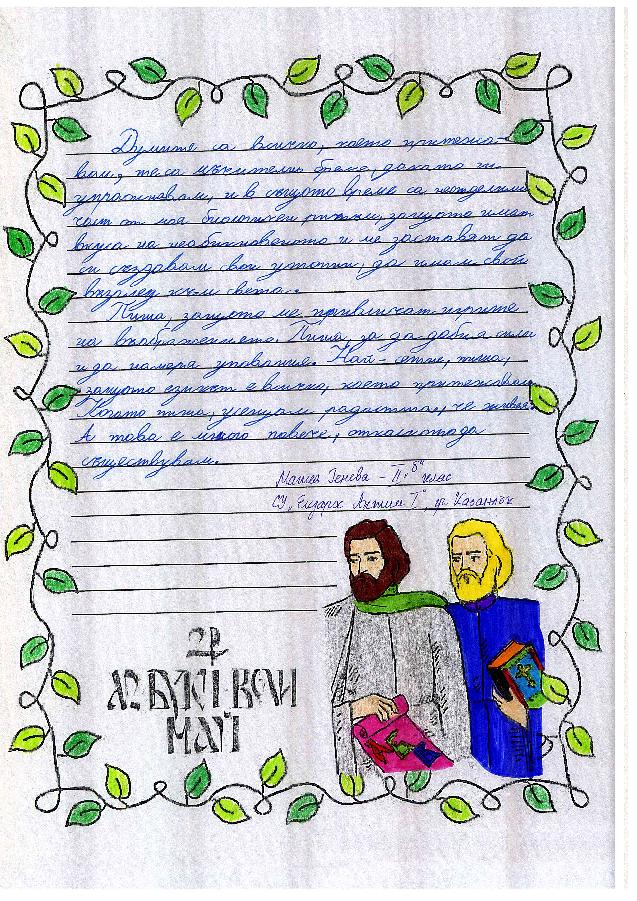 Думите са всичко, което притежа-
вам, те са мъчително бреме, докато ги
упражнявам, и в същото време са неотделима
част от моя биологичен ритъм, защото имат
вкуса на необикновеното и ме заставят да
си създавам свои утопии, да имам свой
възглед към света.
Пиша, защото ме привличат игрите
на въображението. Пиша, за да добия сили
и да намеря упование. Най-сетне, пиша,
защото езикът е всичко, което притежавам.
Когато пиша, усещам радостта, че живея.
А това е много повече, отколкото да
съществувам.
Генева - 11. "б" клас
СУ "Екзарх Антим I", гр. Казанлък
24
МАЙ